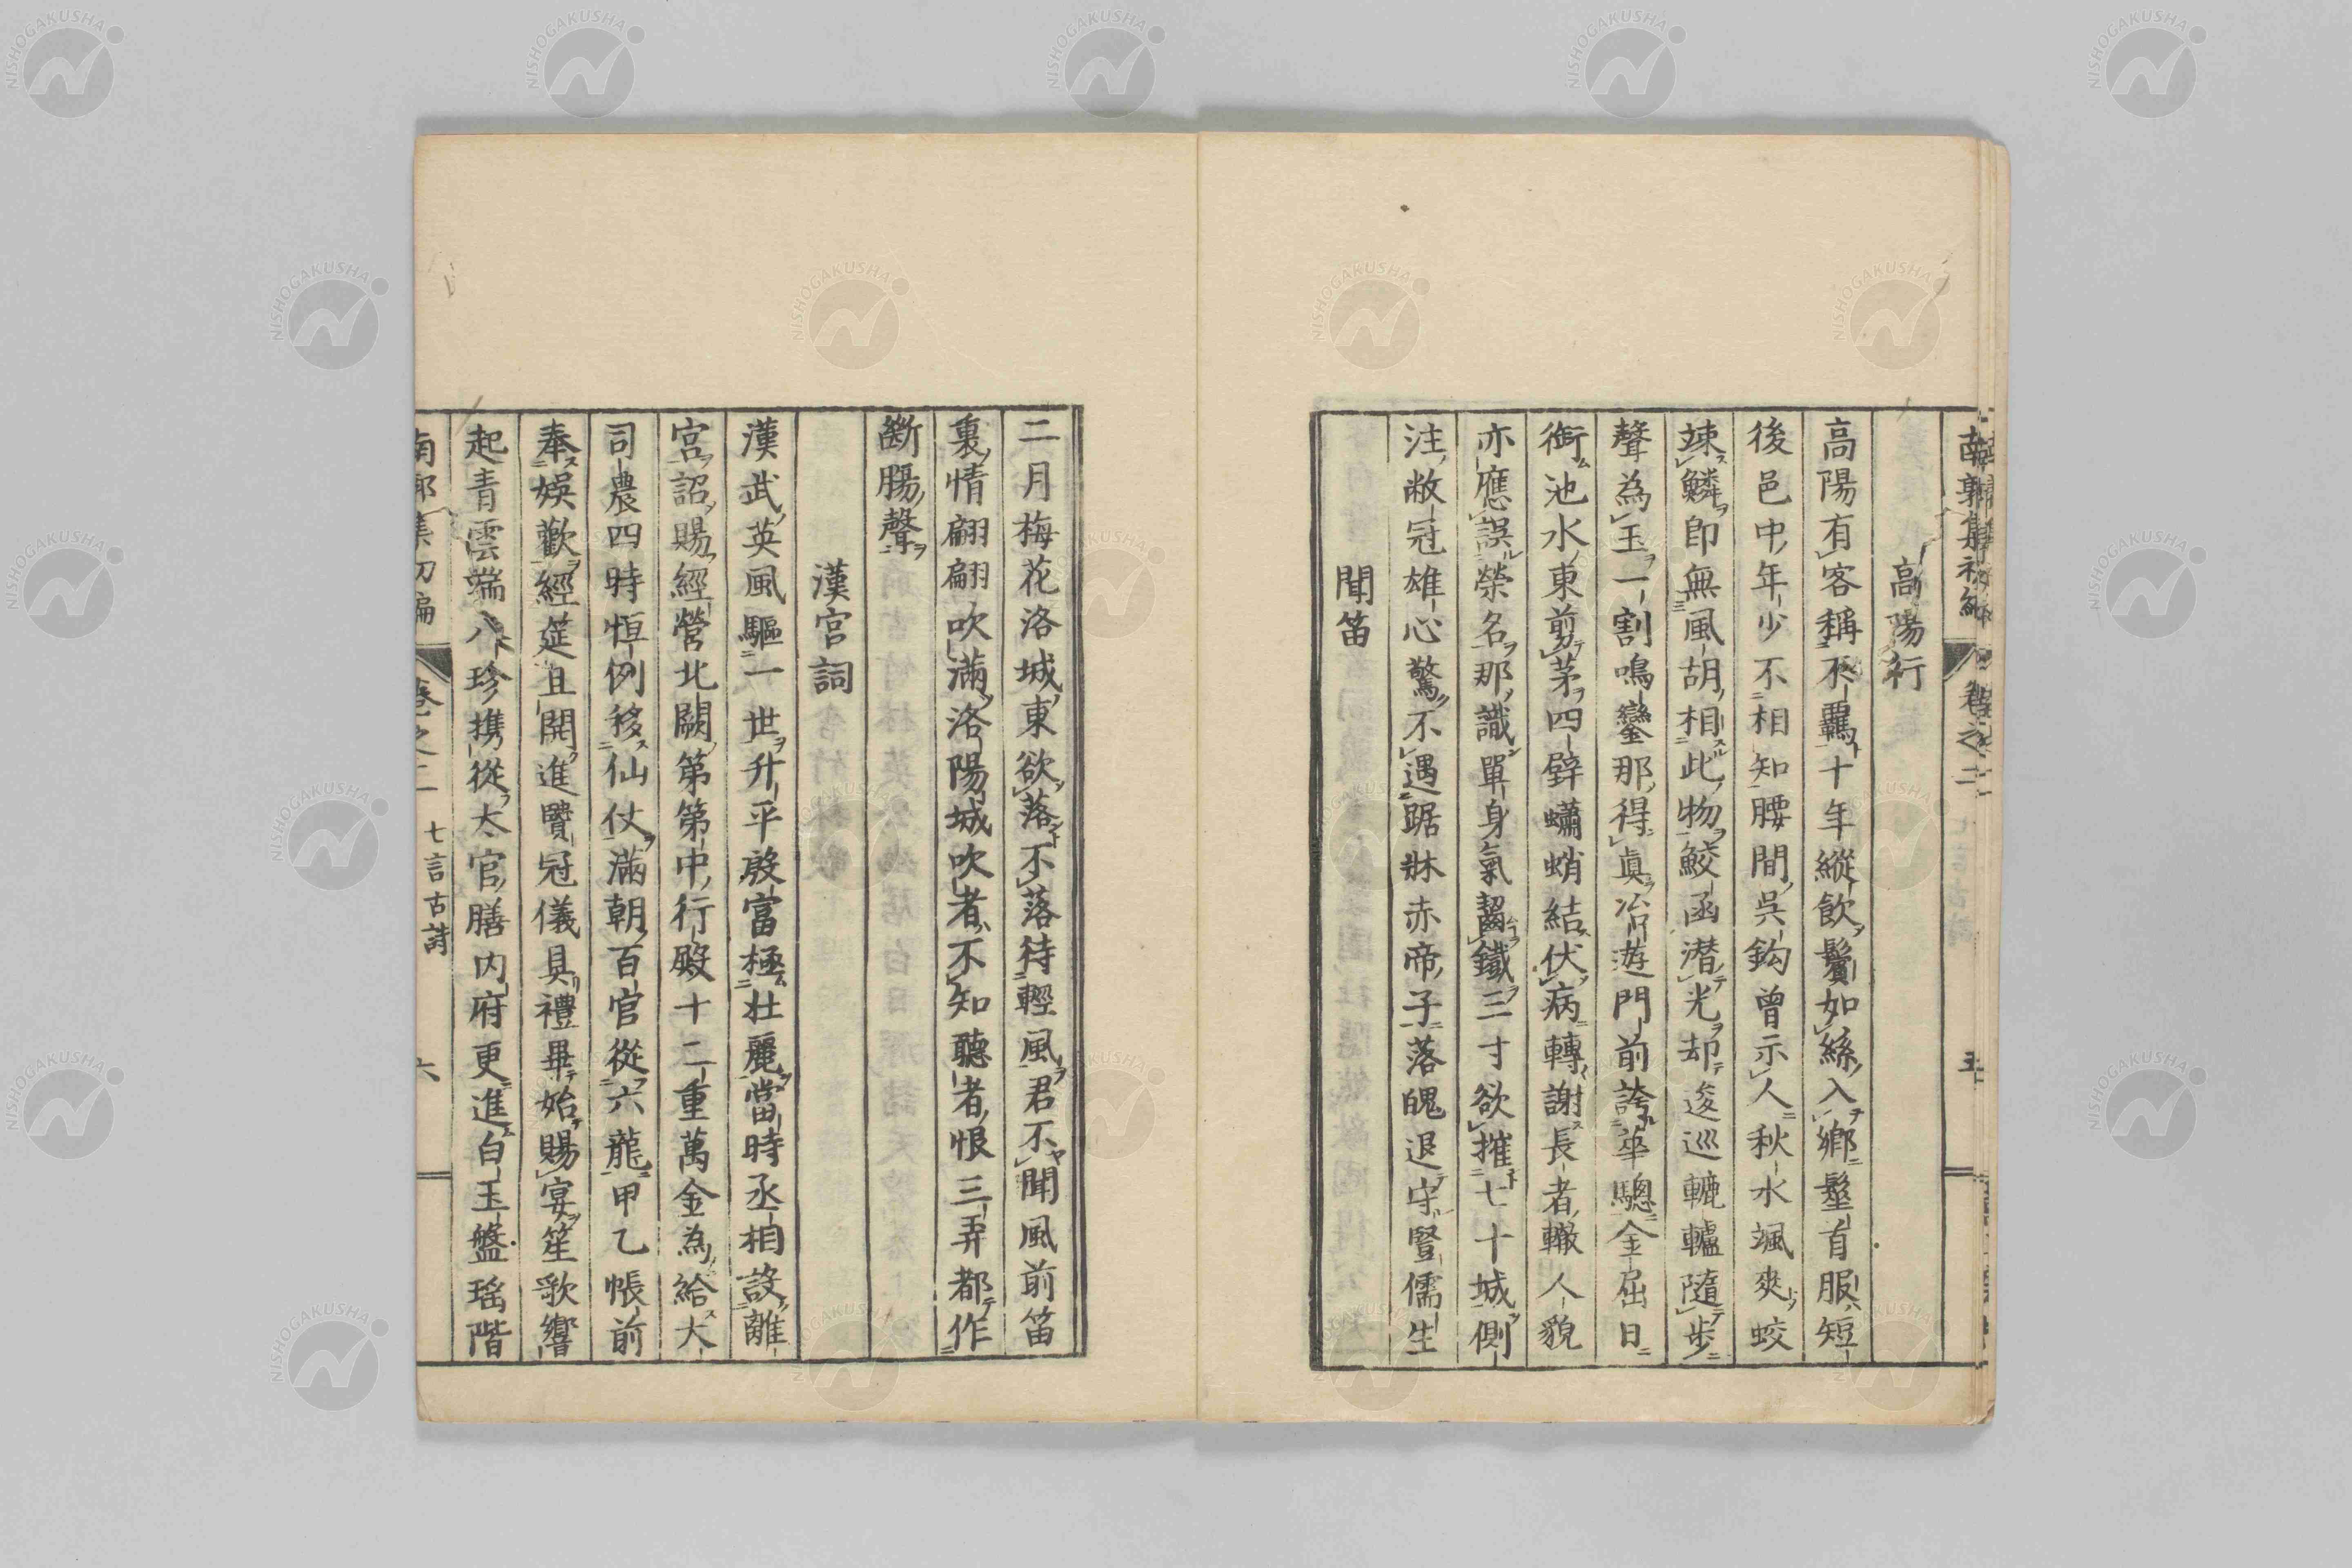 南郭集初編 卷之二 五
高陽行
高陽有客稱不羈十年縱飲鬢如絲入鄉髽首服短
後邑中年少不相知腰間吳鈎曾示人秋水颯爽蛟
竦鱗即無風胡相此物鮫函潜光却逡巡轆轤隨步
聲為玉一割鳴鑾那得真冶遊門前誇華驄金屈日
銜池水東剪茅四壁蠨蛸結伏病轉謝長者轍人貌
亦應誤榮名那識單身氣齧鐵三寸欲摧七十城側
注敝冠雄心驚不遇踞牀赤帝子落魄退守豎儒生
聞笛
二月梅花洛城東欲落不落待輕風君不聞風前笛
裏情翩翩吹滿洛陽城吹者不知聽者恨三弄都作
斷腸聲
漢宮詞
漢武英風驅一世升平殷富極壯麗當時丞相設離
宮詔賜經營北闕第第中行殿十二重萬金為給大
司農四時恒例移仙仗滿朝百官從六龍甲乙帳前
奉娛歡經筵且開進賢冠儀具禮畢始賜宴笙歌響
起青雲端八珍携從大官膳内府更進白玉盤瑤階
南郭集初編 卷之二 七言古詩 六
NISHOGAKUSHA